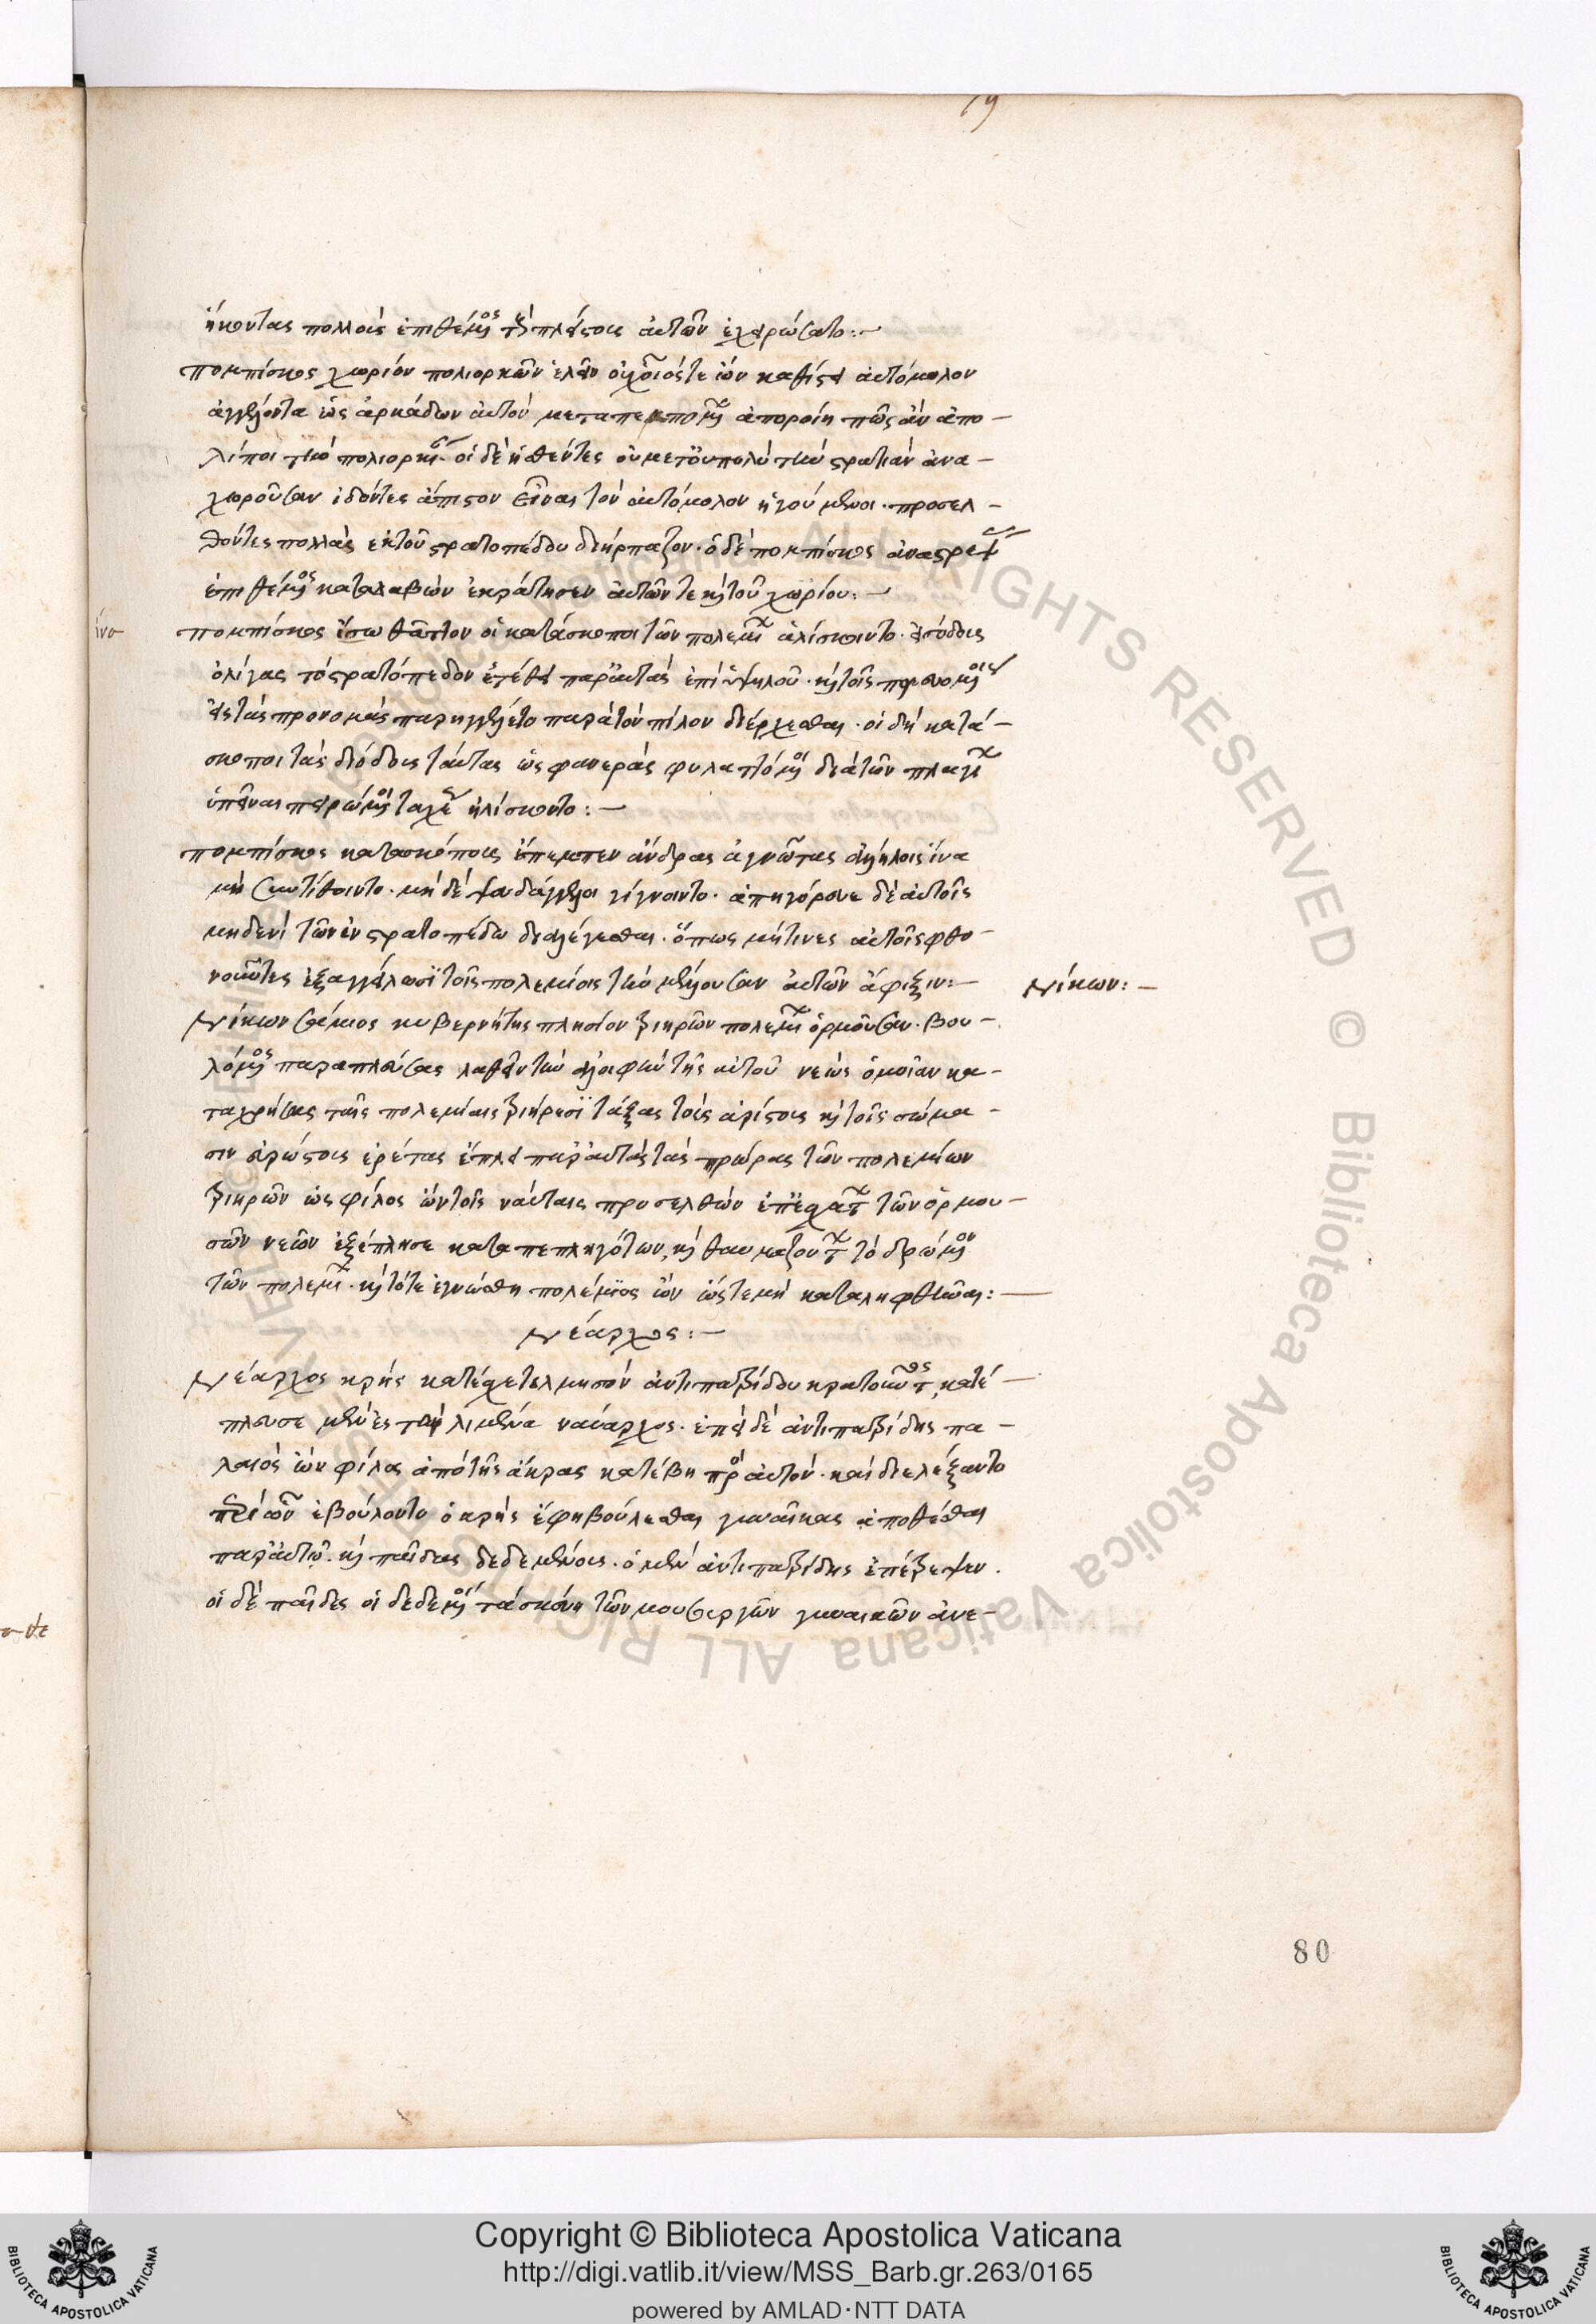 19
ἥκοντας πολλοὺς ἐπιθέμενος τοὺς πλείστους αὐτῶν ἐχειρώσατο:—
πομπίσκος χωρίον πολιορκῶν ἑλεῖν οὐχ οἷός τε ὢν καθίει αὐτόμολον
ἀγγέλλοντα ὡς ἀρκάδων αὐτὸν μεταπεμπομένων ἀποροίη πῶς ἂν ἀπο-
λίποι τὴν πολιορκίαν. οἱ δὲ ἡσθέντες οὐ μετ' οὐ πολὺ τὴν στρατιὰν ἀνα-
χωροῦσαν ἰδόντες ἄπιστον εἶναι τὸν αὐτόμολον ἡγούμενοι. προσελ-
θόντες πολλὰς ἐκ τοῦ στρατοπέδου διήρπαζον. ὁ δὲ πομπίσκος ἀναστρέψας
ἐπιθέμενος καταλαβὼν ἐκράτησεν αὐτῶν τε καὶ τοῦ χωρίου:—
πομπίσκος ἵσω θᾶττον οἱ κατάσκοποι τῶν πολεμίων ἁλίσκοιντο. εἰσόδους
ὀλίγας τὸ στρατόπεδον ἐτέθει παρ' αὐτὰς ἐπὶ ὑψηλοῦ. καὶ τοῖς
εἰς τὰς προνομὰς παρηγγέλλετο παρὰ τὸν πίλον διέρχεσθαι. οἱ δὴ κατά-
σκοποι τὰς διόδους ταύτας ὡς φανερὰς φυλαττόμενοι διὰ τῶν πλαγίων
ὑπεῖναι πειρώμενοι ταχέως ἡλίσκοντο:—
πομπίσκος κατασκόπους ἔπεμπεν ἄνδρας ἀγνῶτας ἀλλήλοις ἵνα
μὴ συντίθοιντο. μὴ δὲ ψευδάγγελοι γίγνοιντο. ἀπηγόρευε δὲ αὐτοῖς
μηδενὶ τῶν ἐν στρατοπέδω διαλέγεσθαι. ὅπως μήτινες αὐτοῖς φθο-
νοῦντες ἐξαγγείλωσι τοῖς πολεμίοις τὴν μέλλουσαν αὐτῶν ἄφιξιν:—
Νίκων:—
Νίκων σάμιος κυβερνήτης πλησίον τριηρῶν πολεμίων ὁρμοῦσαν. βου-
λόμενος παραπλεύσας λαθεῖν τὴν ἀλοιφὴν τῆς αὐτοῦ νεὼς ὁμοίαν κα-
ταχρήσας ταῖς πολεμίαις τριήρεσι τάξας τοὺς ἀρίστους καὶ τοῖς σώμα-
σιν εὐρώστους ἐρέτας ἔπλει παρ' αὐτὰς τὰς πρώρας τῶν πολεμίων
τριηρῶν ὡς φίλος ὢν τοῖς ναύταις προσελθὼν ἐπ' ἐσχάτων τῶν ὁρμου-
σῶν νεῶν ἐξέπλησε καταπεπληγότων, καὶ θαυμαζόντων τὸ δρώμενον
τῶν πολεμίων. καὶ τότε ἐγνώσθη πολέμιος ὢν ὥστε μὴ καταληφθῆναι:—
Νέαρχος:—
Νέαρχος κρὴς κατέσχε τελμησὸν ἀντιπατρίδου κρατοῦντος, κατέ-
πλευσε μὲν ἐς τὸν λιμένα ναύαρχος. ἐπεὶ δὲ ἀντιπατρίδης πα-
λαιὸς ὢν φίλος ἀπὸ τῆς ἄκρας κατέβη πρὸς αὐτόν. καὶ διελέξαντο
περὶ ὧν ἐβούλοντο ὁ κρὴς ἔφη βούλεσθαι γυναῖκας ἀποθέσθαι
παρ' αὐτῷ. καὶ παῖδας δεδεμένους. ὁ μὲν ἀντιπατρίδης ἐπέτρεψεν.
οἱ δὲ παῖδες οἱ δεδεμένοι τὰ σκεύη τῶν μουσουργῶν γυναικῶν ἀνε-
80
Copyright © Biblioteca Apostolica Vaticana
http://digi.vatlib.it/view/MSS_Barb.gr.263/0165
powered by AMLAD·NTT DATA